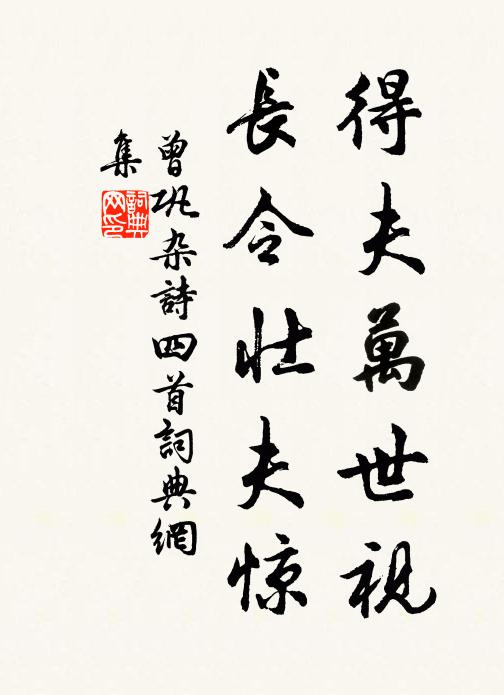 得夫萬世視
長令壯夫惊
曾巩杂詩四首詞典網
集
詞典网印